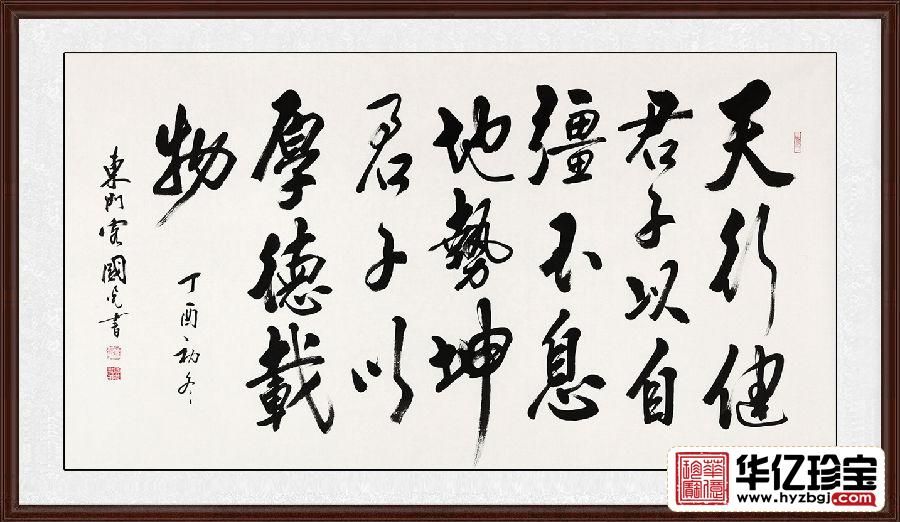 天行健
君子以自
彊不息
地勢坤
君子以
厚德載
物
丁酉初冬
國
書
华亿珍宝
www.hyzbgj.com